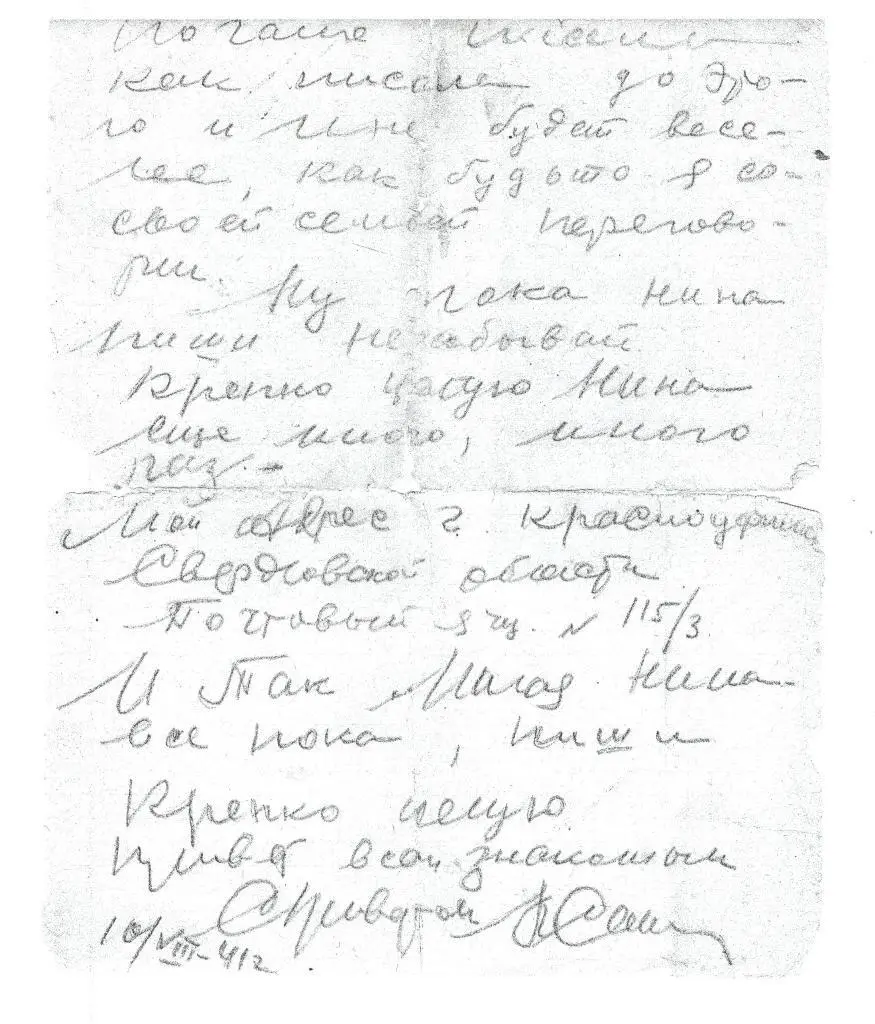 почаще пиши
как писала до это-
го и мне будет весе-
лее, как будьто я со-
своей семьей перегово-
рил.
Ну пока Нина
пиши незабывай
Крепко целую Нина
еще много, много
раз. -
Мой адрес г. Красноуфимск
Свердловской области
Почтовый ящ. № 115/3
И так Милая Нина
все пока, пиши
Крепко целую
Привет всем знакомым
С Приветом
10/VIII-41г